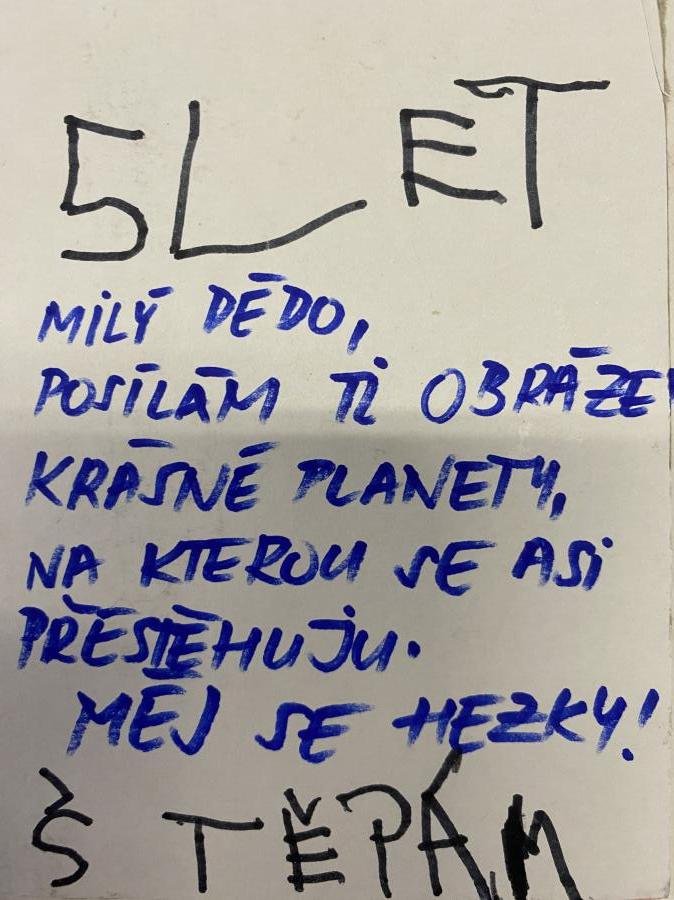 5 LET
MILÝ DĚDO,
POSÍLÁM TI OBRÁZE
KRÁSNÉ PLANETY,
NA KTEROU SE ASI
PŘESTĚHUJU.
MĚJ SE HEZKY!
ŠTĚPÁN